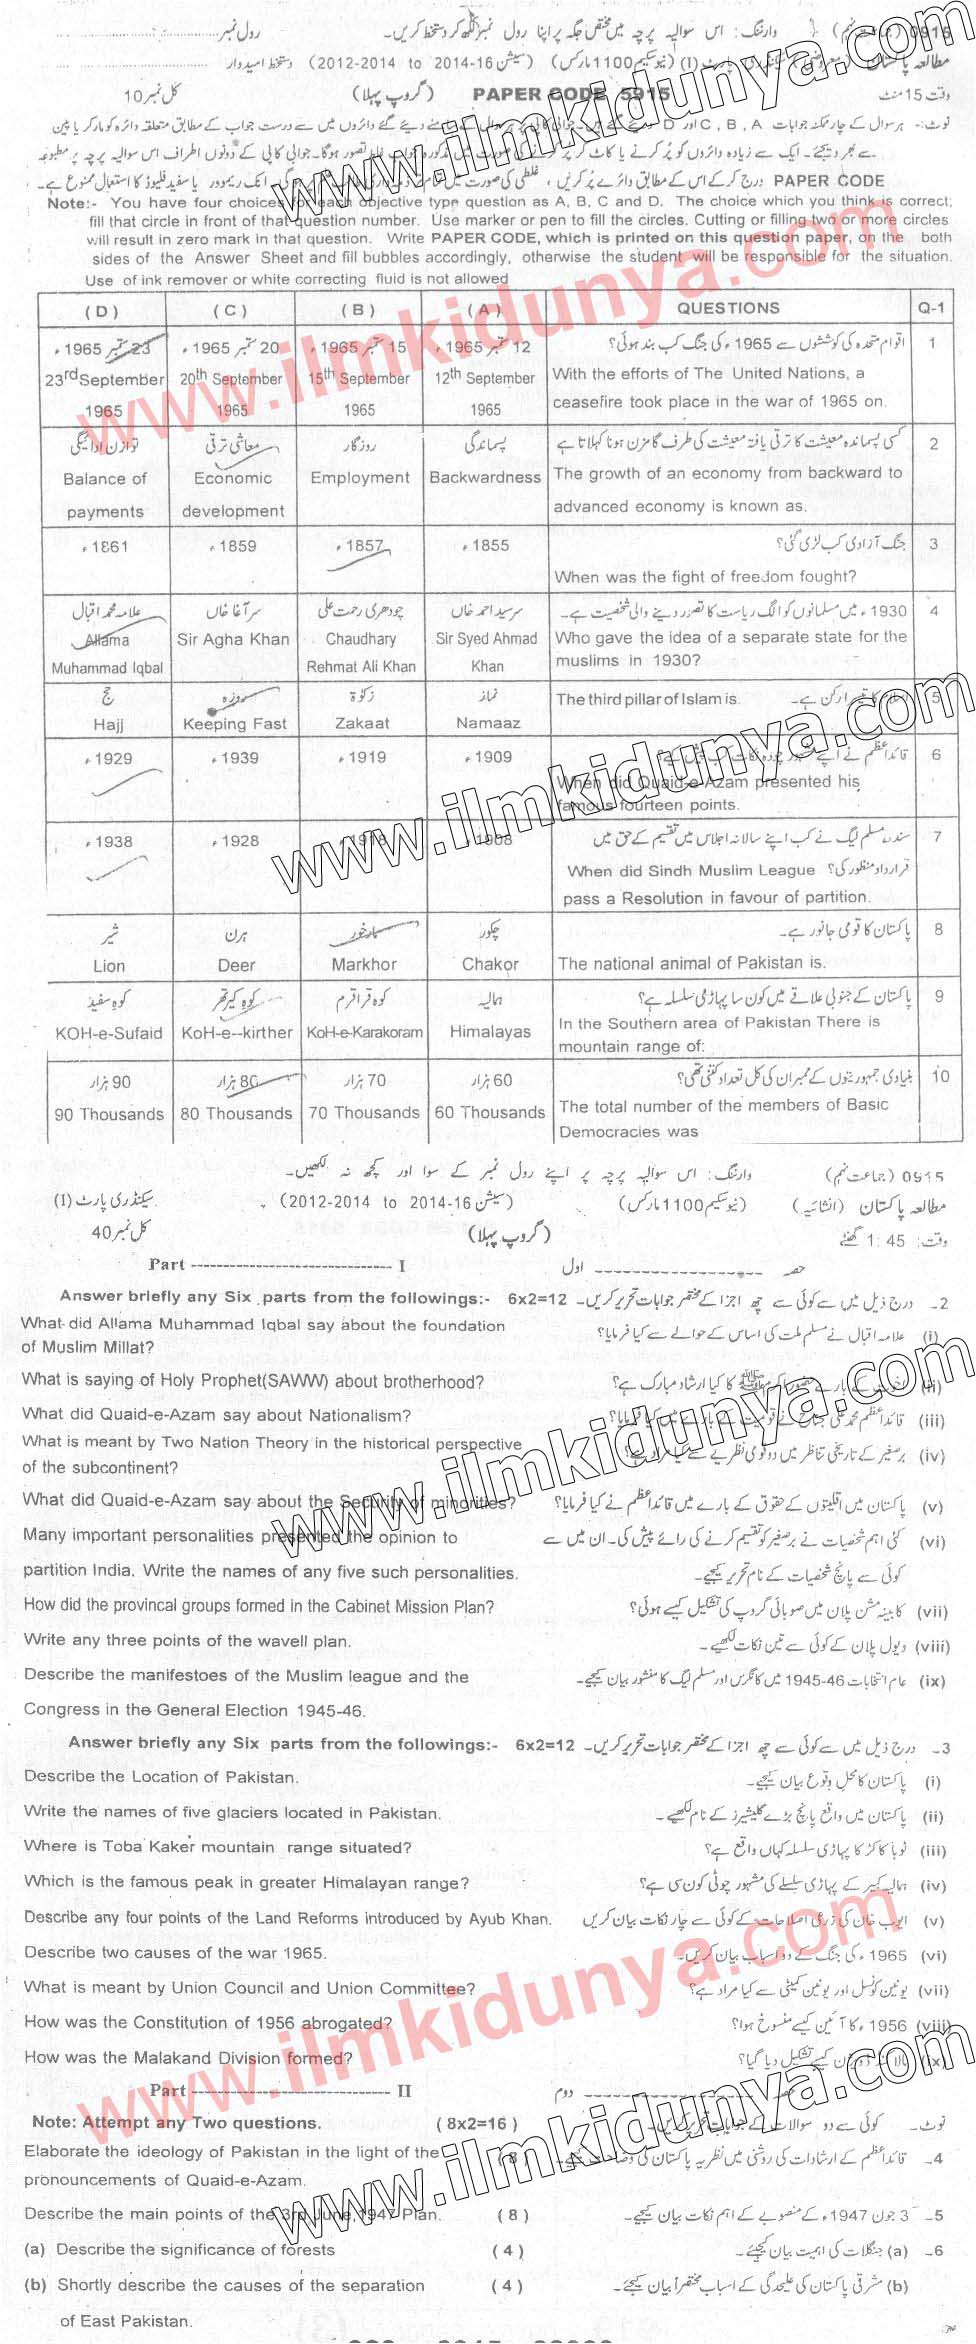 0915 (جماعت نہم) وارننگ: اس سوالیہ پرچہ میں مختص جگہ پر اپنا رول نمبر لکھ کر دستخط کریں۔ رول نمبر
مطالعہ پاکستان (معروضی) سیکنڈری پارٹ (I) (نیو سکیم 1100 مارکس) (سیشن 16-2014 to 2012-2014) دستخط امیدوار
وقت 15 منٹ PAPER CODE 5915 (گروپ پہلا) کل نمبر 10
نوٹ:- ہر سوال کے چار ممکنہ جوابات A, B, C اور D دیئے گئے ہیں۔ جوابی کاپی پر ہر سوال کے سامنے دیئے گئے دائروں میں سے درست جواب کے مطابق متعلقہ دائرہ کو مارکر یا پین
سے بھر دیجئے۔ ایک سے زیادہ دائروں کو پُر کرنے یا کاٹ کر پُر کرنے کی صورت میں مذکورہ جواب غلط تصور ہوگا۔ جوابی کاپی کے دونوں اطراف اس سوالیہ پرچہ پر مطبوعہ
PAPER CODE درج کر کے اس کے مطابق دائرے پُر کریں، غلطی کی صورت میں تمام ذمہ داری ہوگی۔ انک ریموور یا سفید فلیوڈ کا استعمال ممنوع ہے۔
Note:- You have four choices for each objective type question as A, B, C and D. The choice which you think is correct;
fill that circle in front of that question number. Use marker or pen to fill the circles. Cutting or filling two or more circles
will result in zero mark in that question. Write PAPER CODE, which is printed on this question paper, on the both
sides of the Answer Sheet and fill bubbles accordingly, otherwise the student will be responsible for the situation.
Use of ink remover or white correcting fluid is not allowed
(D) (C) (B) (A) QUESTIONS Q-1
23 ستمبر 1965ء 20 ستمبر 1965ء 15 ستمبر 1965ء 12 ستمبر 1965ء اقوام متحدہ کی کوششوں سے 1965ء کی جنگ کب بند ہوئی؟ 1
23rd September 20th September 15th September 12th September With the efforts of The United Nations, a
1965 1965 1965 1965 ceasefire took place in the war of 1965 on.
توازن ادائیگی معاشی ترقی روزگار پسماندگی کسی پسماندہ معیشت کا ترقی یافتہ معیشت کی طرف گامزن ہونا کہلاتا ہے 2
Balance of Economic Employment Backwardness The growth of an economy from backward to
payments development advanced economy is known as.
1861ء 1859ء 1857ء 1855ء جنگ آزادی کب لڑی گئی؟ 3
When was the fight of freedom fought?
علامہ محمد اقبال سر آغا خاں چودھری رحمت علی سر سید احمد خاں 1930ء میں مسلمانوں کو الگ ریاست کا تصور دینے والی شخصیت ہے۔ 4
Allama Sir Agha Khan Chaudhary Sir Syed Ahmad Who gave the idea of a separate state for the
Muhammad Iqbal Rehmat Ali Khan Khan muslims in 1930?
حج روزہ زکوٰۃ نماز اسلام کا تیسرا رکن ہے۔ The third pillar of Islam is. 5
Hajj Keeping Fast Zakaat Namaaz
1929ء 1939ء 1919ء 1909ء قائداعظم نے اپنے مشہور چودہ نکات کب پیش کیے؟ 6
When did Quaid-e-Azam presented his
famous fourteen points.
1938ء 1928ء 1918ء 1908ء سندھ مسلم لیگ نے کب اپنے سالانہ اجلاس میں تقسیم کے حق میں 7
When did Sindh Muslim League قرارداد منظور کی؟
pass a Resolution in favour of partition.
شیر ہرن مارخور چکور پاکستان کا قومی جانور ہے۔ 8
Lion Deer Markhor Chakor The national animal of Pakistan is.
کوہ سفید کوہ کیرتھر کوہ قراقرم ہمالیہ پاکستان کے جنوبی علاقے میں کون سا پہاڑی سلسلہ ہے؟ 9
KOH-e-Sufaid KoH-e--kirther KoH-e-Karakoram Himalayas In the Southern area of Pakistan There is
mountain range of:
90 ہزار 80 ہزار 70 ہزار 60 ہزار بنیادی جمہوریتوں کے ممبران کی کل تعداد کتنی تھی؟ 10
90 Thousands 80 Thousands 70 Thousands 60 Thousands The total number of the members of Basic
Democracies was
0915 (جماعت نہم) وارننگ: اس سوالیہ پرچہ پر اپنے رول نمبر کے سوا اور کچھ نہ لکھیں۔
مطالعہ پاکستان (انشائیہ) (نیو سکیم 1100 مارکس) (سیشن 16-2014 to 2012-2014) سیکنڈری پارٹ (I)
وقت: 1:45 گھنٹے (گروپ پہلا) کل نمبر 40
Part ------------------------------ I حصہ -------------------- اول
Answer briefly any Six parts from the followings:- 6x2=12 2۔ درج ذیل میں سے کوئی سے چھ اجزا کے مختصر جوابات تحریر کریں۔
What did Allama Muhammad Iqbal say about the foundation (i) علامہ اقبال نے مسلم ملت کی اساس کے حوالے سے کیا فرمایا؟
of Muslim Millat?
What is saying of Holy Prophet(SAWW) about brotherhood? (ii) اخوت کے بارے میں حضور اکرم ﷺ کا کیا ارشاد مبارک ہے؟
What did Quaid-e-Azam say about Nationalism? (iii) قائداعظم محمد علی جناح نے قومیت کے بارے میں کیا فرمایا؟
What is meant by Two Nation Theory in the historical perspective (iv) برصغیر کے تاریخی تناظر میں دو قومی نظریے سے کیا مراد ہے؟
of the subcontinent?
What did Quaid-e-Azam say about the Security of minorities? (v) پاکستان میں اقلیتوں کے حقوق کے بارے میں قائداعظم نے کیا فرمایا؟
Many important personalities presented the opinion to (vi) کئی اہم شخصیات نے برصغیر کو تقسیم کرنے کی رائے پیش کی۔ ان میں سے
partition India. Write the names of any five such personalities. کوئی سے پانچ شخصیات کے نام تحریر کیجیے۔
How did the provincal groups formed in the Cabinet Mission Plan? (vii) کابینہ مشن پلان میں صوبائی گروپ کی تشکیل کیسے ہوئی؟
Write any three points of the wavell plan. (viii) ویول پلان کے کوئی سے تین نکات لکھیے۔
Describe the manifestoes of the Muslim league and the (ix) عام انتخابات 46-1945 میں کانگرس اور مسلم لیگ کا منشور بیان کیجیے۔
Congress in the General Election 1945-46.
Answer briefly any Six parts from the followings:- 6x2=12 3۔ درج ذیل میں سے کوئی سے چھ اجزا کے مختصر جوابات تحریر کریں۔
Describe the Location of Pakistan. (i) پاکستان کا محل وقوع بیان کیجیے۔
Write the names of five glaciers located in Pakistan. (ii) پاکستان میں واقع پانچ بڑے گلیشیرز کے نام لکھیے۔
Where is Toba Kaker mountain range situated? (iii) ٹوبا کاکڑ کا پہاڑی سلسلہ کہاں واقع ہے؟
Which is the famous peak in greater Himalayan range? (iv) ہمالیہ کبیر کے پہاڑی سلسلے کی مشہور چوٹی کون سی ہے؟
Describe any four points of the Land Reforms introduced by Ayub Khan. (v) ایوب خان کی زرعی اصلاحات کے کوئی سے چار نکات بیان کریں
Describe two causes of the war 1965. (vi) 1965ء کی جنگ کے دو اسباب بیان کریں۔
What is meant by Union Council and Union Committee? (vii) یونین کونسل اور یونین کمیٹی سے کیا مراد ہے؟
How was the Constitution of 1956 abrogated? (viii) 1956ء کا آئین کیسے منسوخ ہوا؟
How was the Malakand Division formed? (ix) مالاکنڈ ڈویژن کیسے تشکیل دیا گیا؟
Part ------------------------------ II حصہ -------------------- دوم
Note: Attempt any Two questions. (8x2=16) نوٹ۔ کوئی سے دو سوالات کے جوابات تحریر کریں۔
Elaborate the ideology of Pakistan in the light of the (8) 4۔ قائداعظم کے ارشادات کی روشنی میں نظریہ پاکستان کی وضاحت کیجیے۔
pronouncements of Quaid-e-Azam.
Describe the main points of the 3rd June,1947 Plan. (8) 5۔ 3 جون 1947ء کے منصوبے کے اہم نکات بیان کیجیے۔
(a) Describe the significance of forests (4) 6۔ (a) جنگلات کی اہمیت بیان کیجئے۔
(b) Shortly describe the causes of the separation (4) (b) مشرقی پاکستان کی علیحدگی کے اسباب مختصراً بیان کیجئے۔
of East Pakistan.
www.ilmkidunya.com
www.ilmkidunya.com
www.ilmkidunya.com
www.ilmkidunya.com
www.ilmkidunya.com
www.ilmkidunya.com